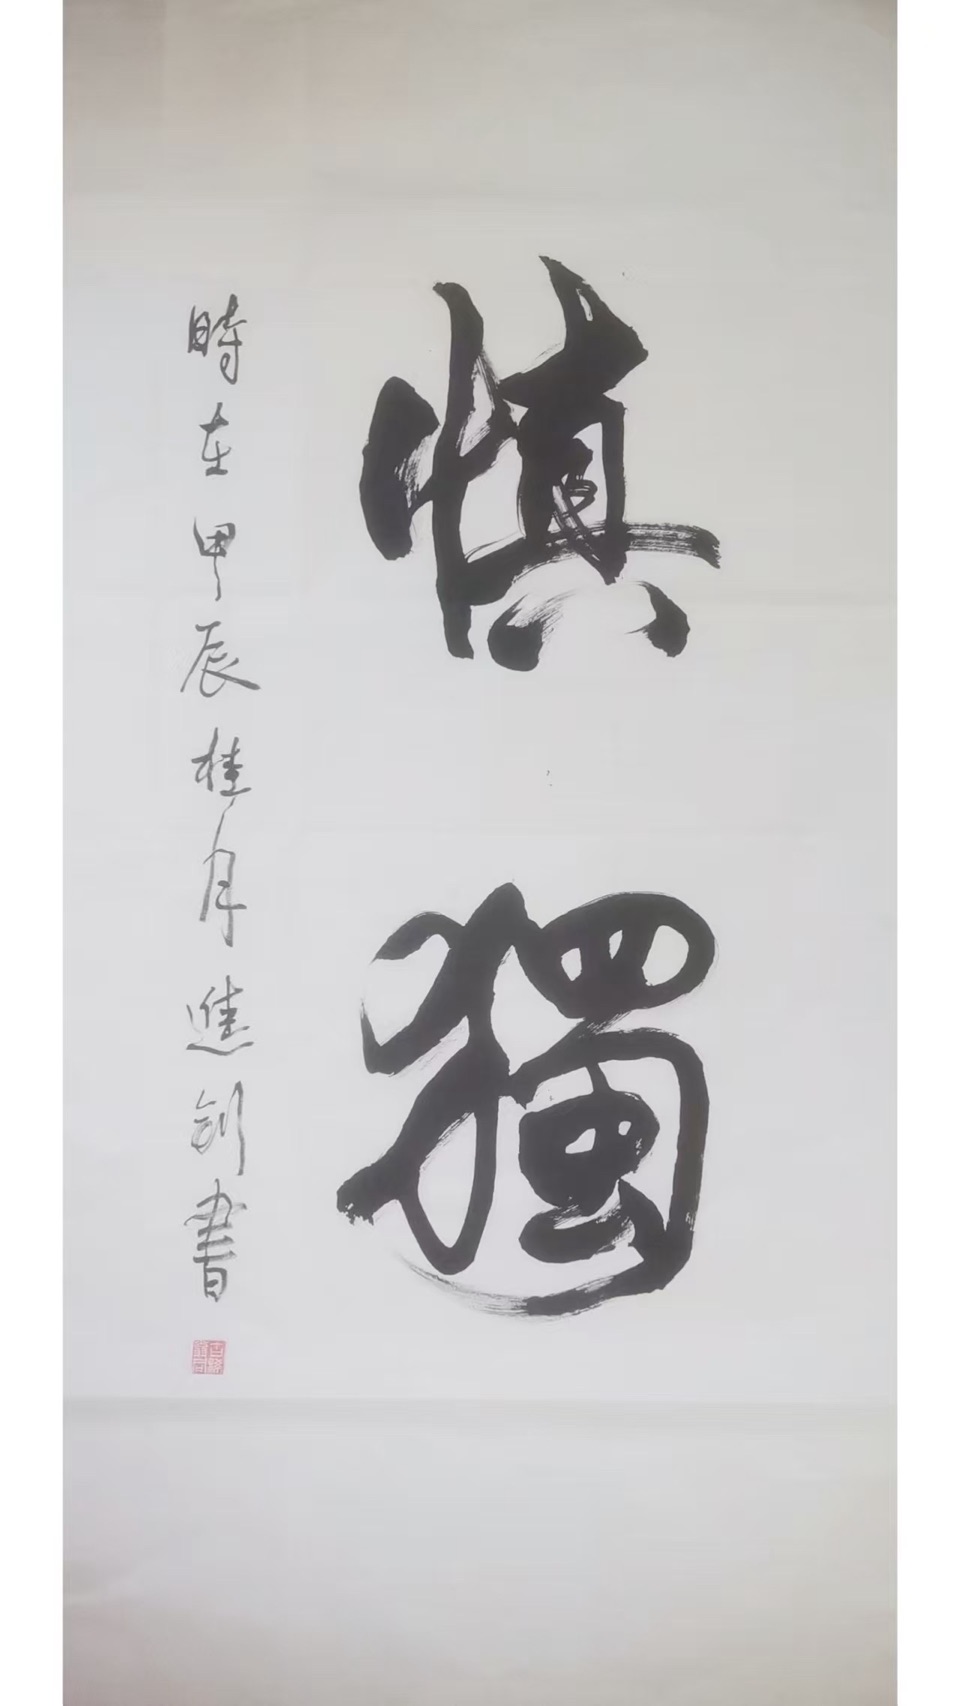 慎獨
時在甲辰桂月進劍書